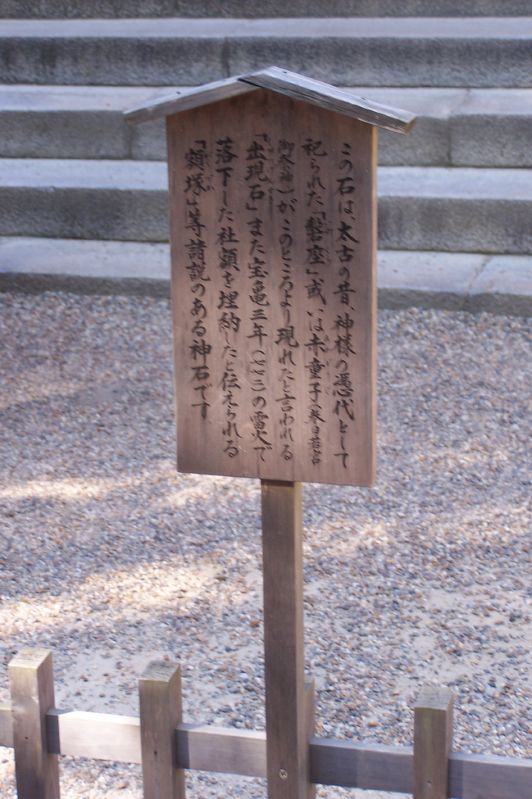 この石は、太古の昔、神様の憑代として
祀られた「磐座」或いは赤童子(春日若宮
御祭神)がこのところより現れたと言われる
「出現石」また宝亀三年(七七二)の雷火で
落下した社額を埋納したと伝えられる
「額塚」等諸説のある神石です